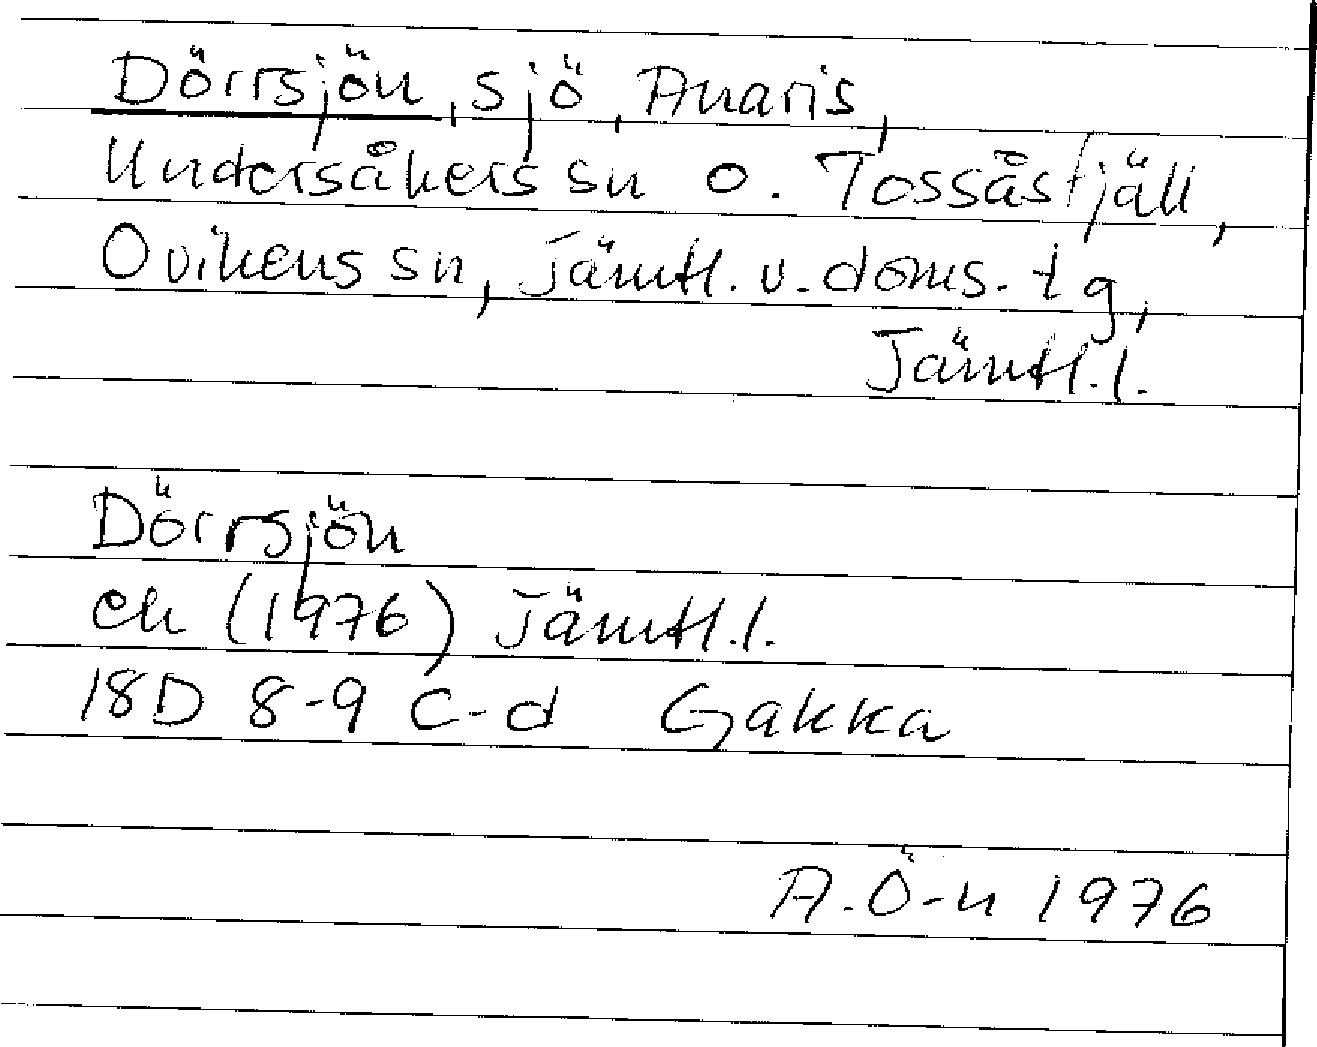 Dörrsjön, sjö, Anaris,
Undersåkers sn o. Tossåsfjäll,
Ovikens sn, Jämtl. v. doms. tg,
Jämtl. l.
Dörrsjön
ek (1976) Jämtl. l.
18D 8-9 c-d Gakka
A. Ö-n 1976